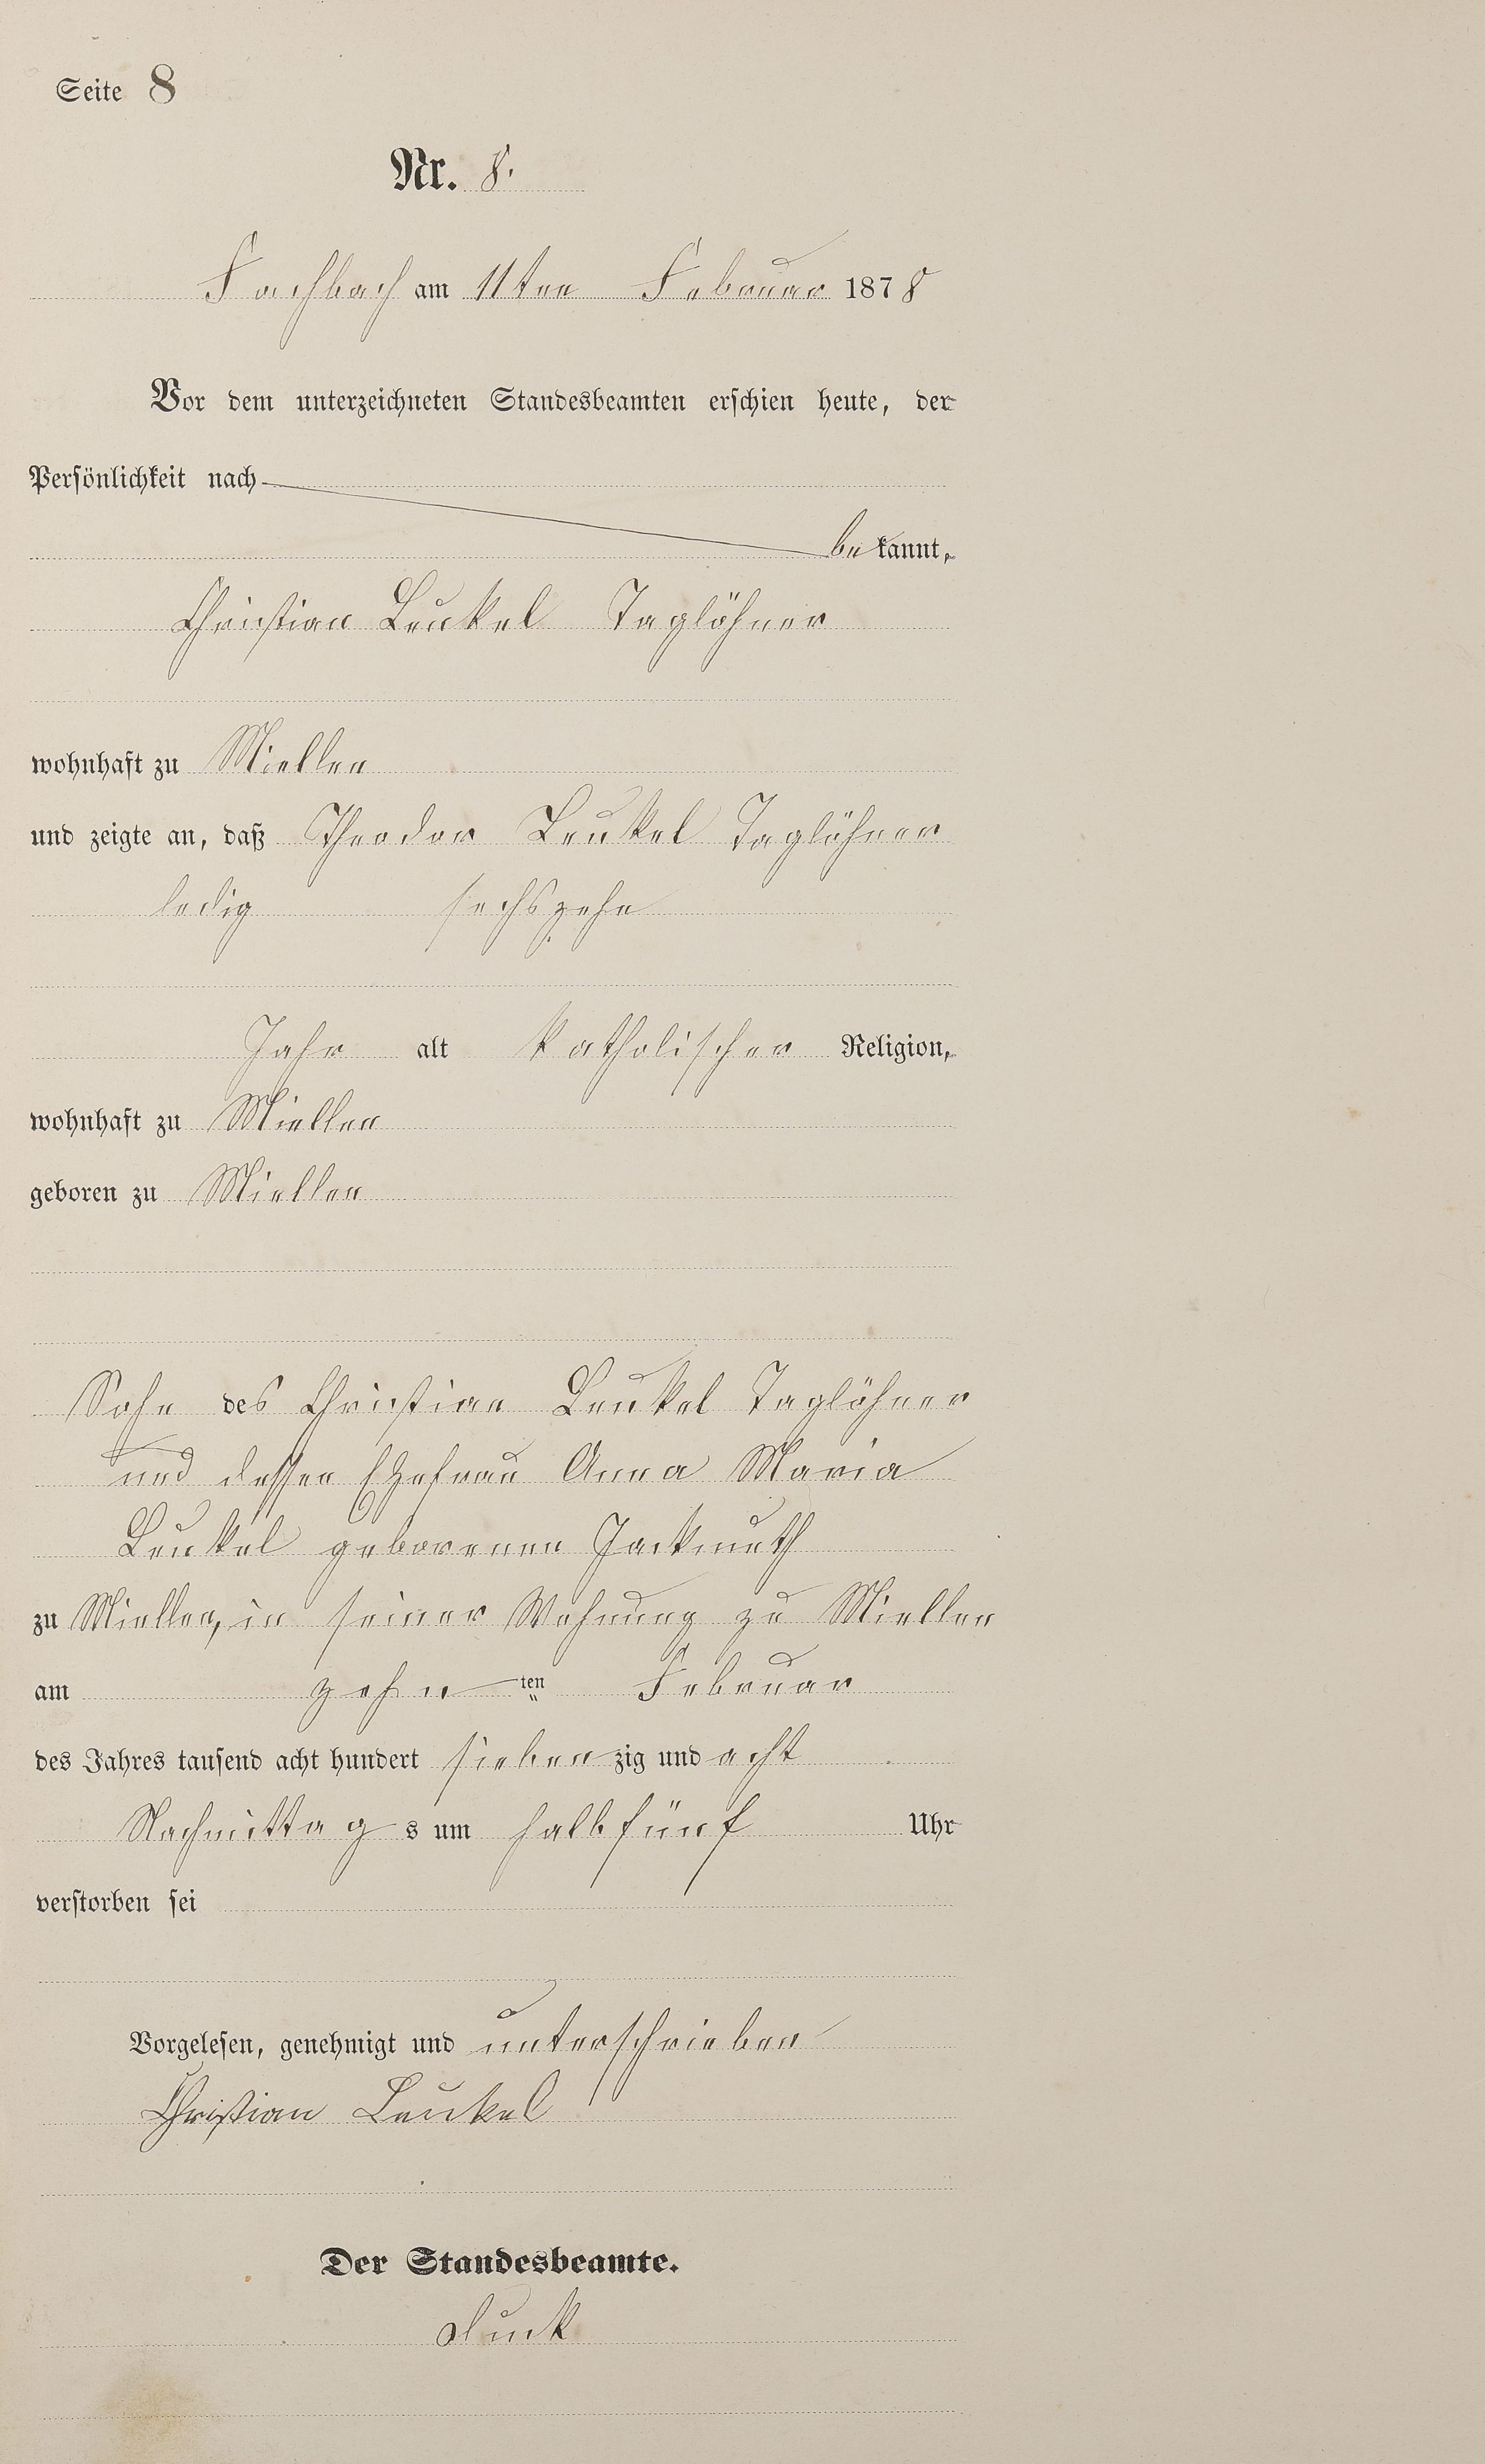 Seite 8
Nr. 8.
Fachbach am 11ten Februar 1878
Vor dem unterzeichneten Standesbeamten erschien heute, der
Persönlichkeit nach
bekannt,
Christian Leukel Taglöhner
wohnhaft zu Miellen
und zeigte an, daß Theodor Leukel Taglöhner
ledig sechszehn
Jahr alt katholischer Religion,
wohnhaft zu Miellen
geboren zu Miellen
Sohn des Christian Leukel Taglöhner
und dessen Ehefrau Anna Maria
Leukel geborenen Jackmuth
zu Miellen, in seiner Wohnung zu Miellen
am zehn ten Februar
des Jahres tausend acht hundert sieben zig und acht
Nachmittag s um halb fünf Uhr
verstorben sei
Vorgelesen, genehmigt und unterschrieben
Christian Leukel
Der Standesbeamte.